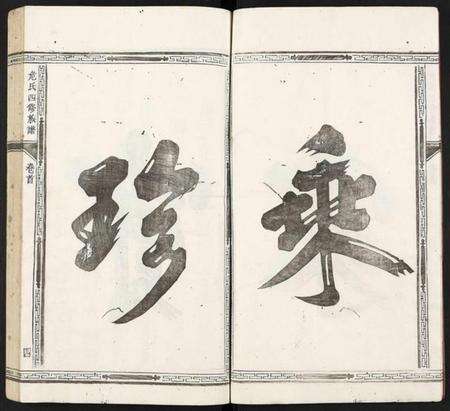 乘
珍
氏四修族譜
卷首